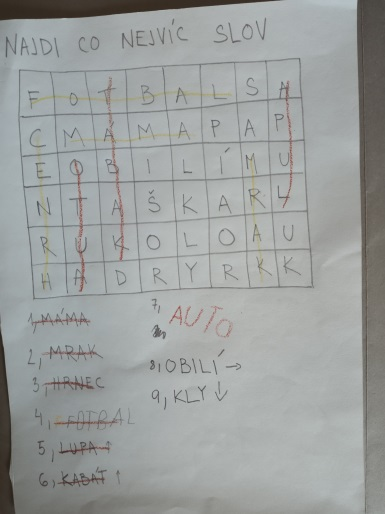 NAJDI CO NEJVÍC SLOV
F O T B A L S A
C M Á M A P A P
E O B I L Í M U
N T A Š K A R L
R U K O L O A U
H A D R Y R K K
1, MÁMA
2, MRAK
3, HRNEC
4, FOTBAL
5, LUPA ↑
6, KABÁT ↑
7, AUTO
8, OBILÍ →
9, KLY ↓